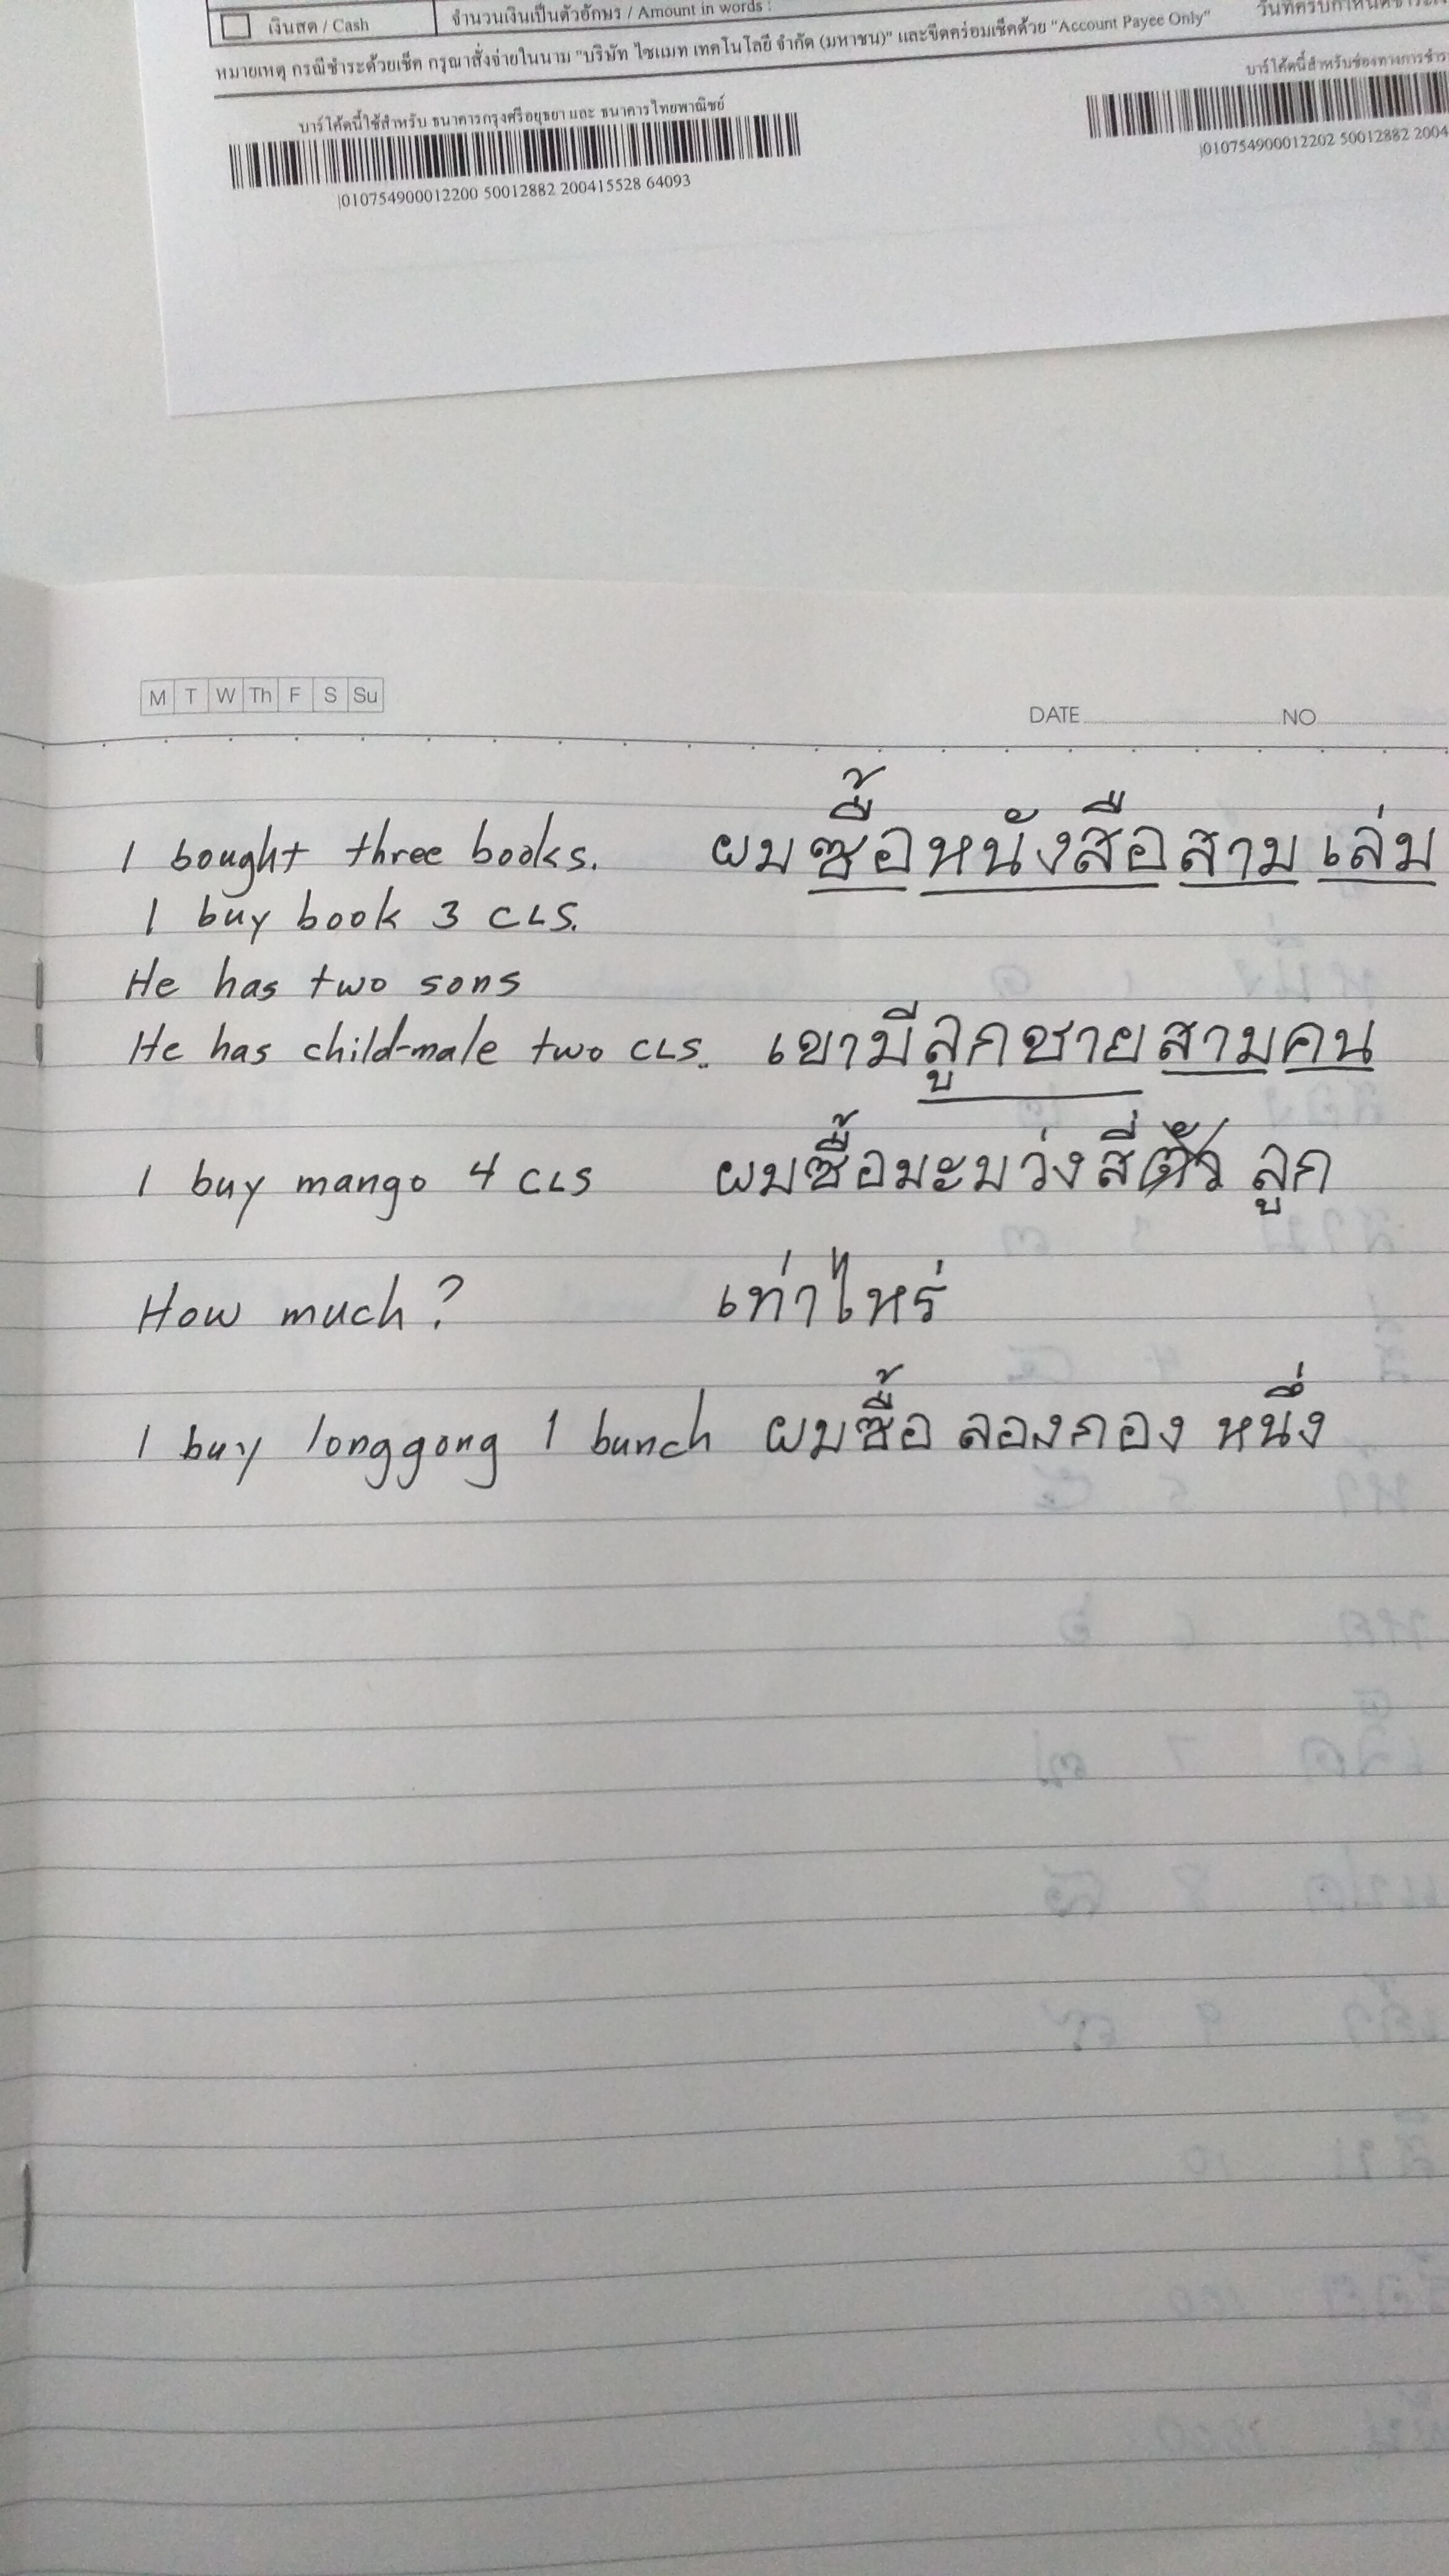 เงินสด / Cash จำนวนเงินเป็นตัวอักษร / Amount in words :
หมายเหตุ กรณีชำระด้วยเช็ค กรุณาสั่งจ่ายในนาม "บริษัท ไซแมท เทคโนโลยี จำกัด (มหาชน)" และขีดคร่อมเช็คด้วย "Account Payee Only"
บาร์โค้ดนี้ใช้สำหรับ ธนาคารกรุงศรีอยุธยา และ ธนาคารไทยพาณิชย์
|010754900012200 50012882 200415528 64093
บาร์โค้ดนี้สำหรับช่องทางการชำระ
|010754900012202 50012882 2004
M T W Th F S Su
DATE NO
I bought three books. ผมซื้อหนังสือสามเล่ม
I buy book 3 CLS.
He has two sons
He has child-male two CLS. เขามีลูกชายสามคน
I buy mango 4 CLS ผมซื้อมะมว่งสี่ตัว ลูก
How much? เท่าไหร่
I buy longgong 1 bunch ผมซื้อ ลองกอง หนึ่ง